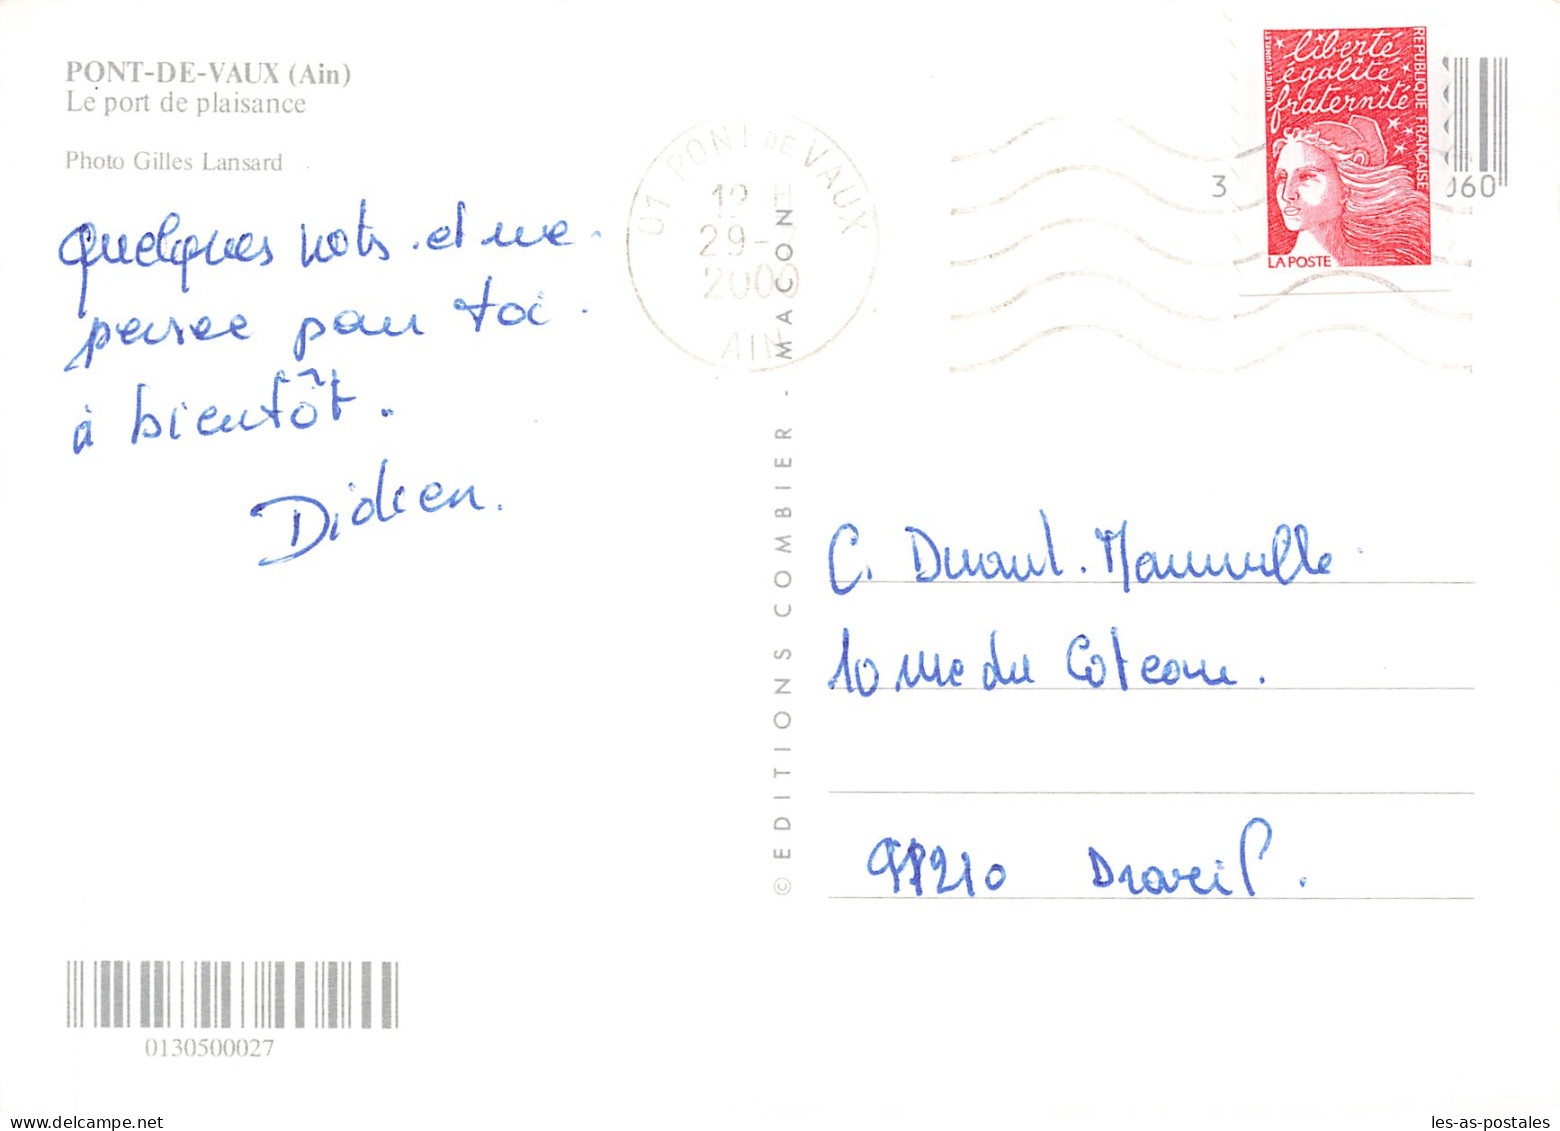 PONT-DE-VAUX (Ain)
Le port de plaisance
Photo Gilles Lansard
quelques mots et une
pensée pour toi.
à bientôt.
Didier.
01 PONT DE VAUX
12 H
29-7
2000
AIN
liberté
égalité
fraternité
REPUBLIQUE FRANÇAISE
LUQUET & JUMELET
LA POSTE
3
060
© EDITIONS COMBIER - MACON
C.
10 rue du Coteau.
91210 Draveil.
0130500027
les-as-postales